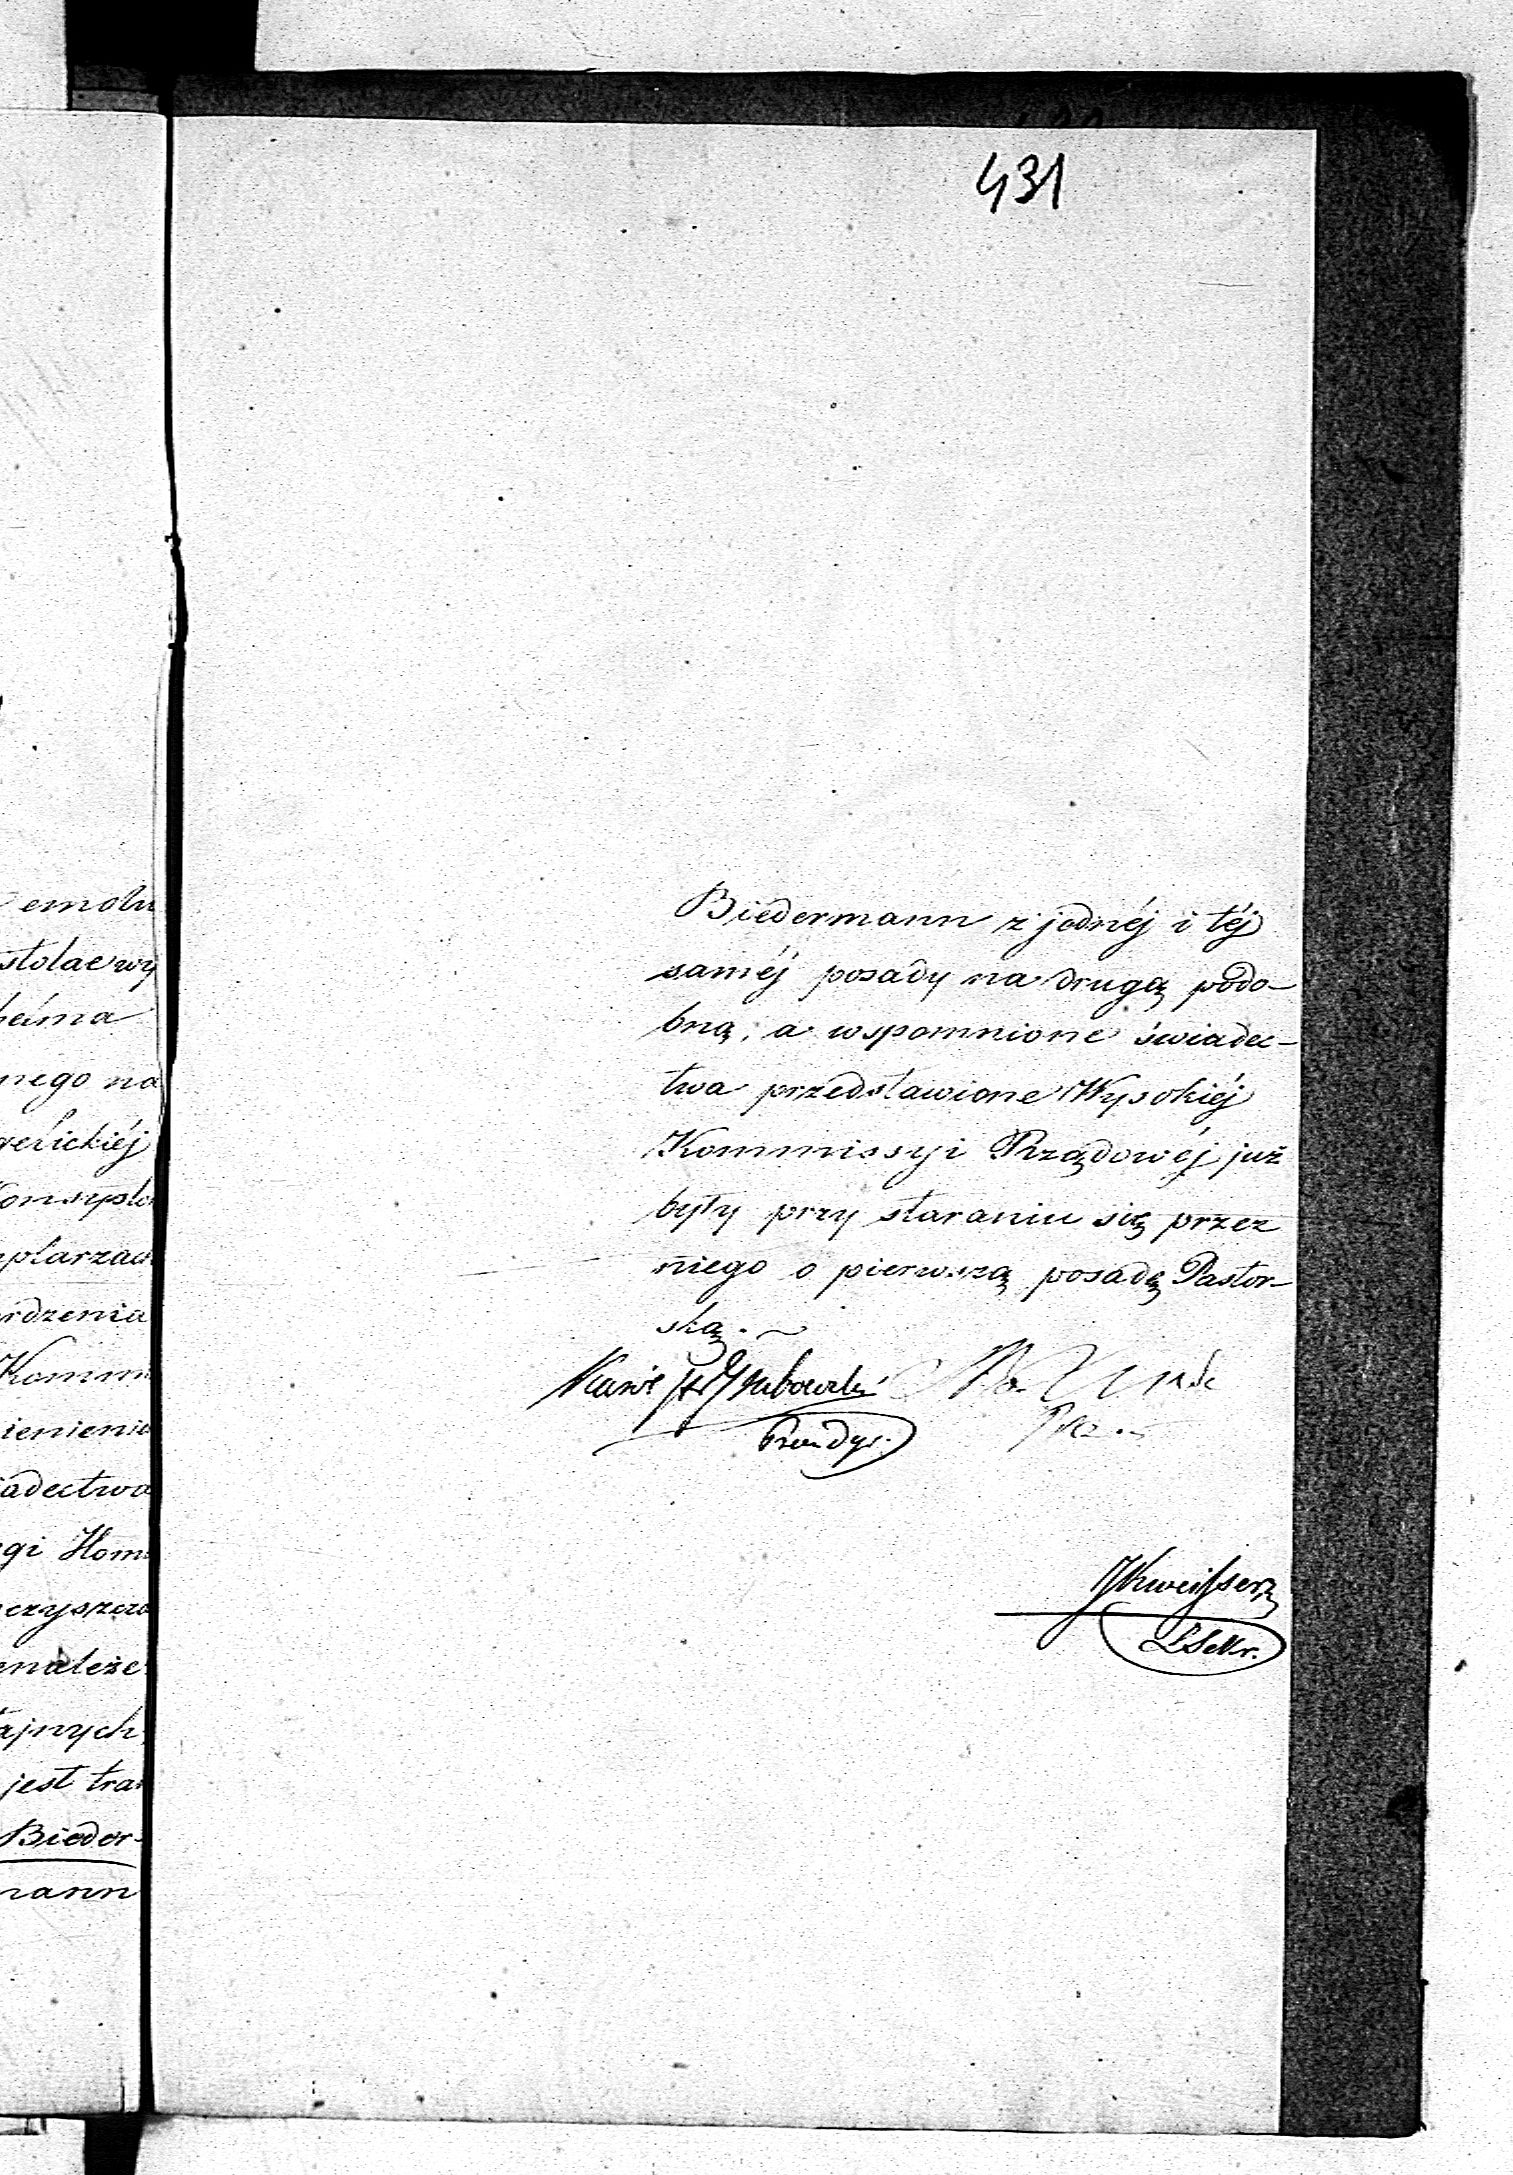 431
emolu
stolae wy
helma
nego na
gelickiéj
Konsysto
plarzach
rdzenia
Kommi
ienienie
iadectwa
gi Homi
eczyszcza
enależe
ajnych,
jest tran
Bieder-
mann
Biedermann z jednéj i téj
saméj posady na drugą podo-
bną, a wspomnione świadec-
twa przedstawione Wysokiéj
Kommissyi Rządowéj już
były przy staraniu się przez
niego o pierwszą posadę Pastor-
ską. ~
Prezydu.
Prez.
LSekr.